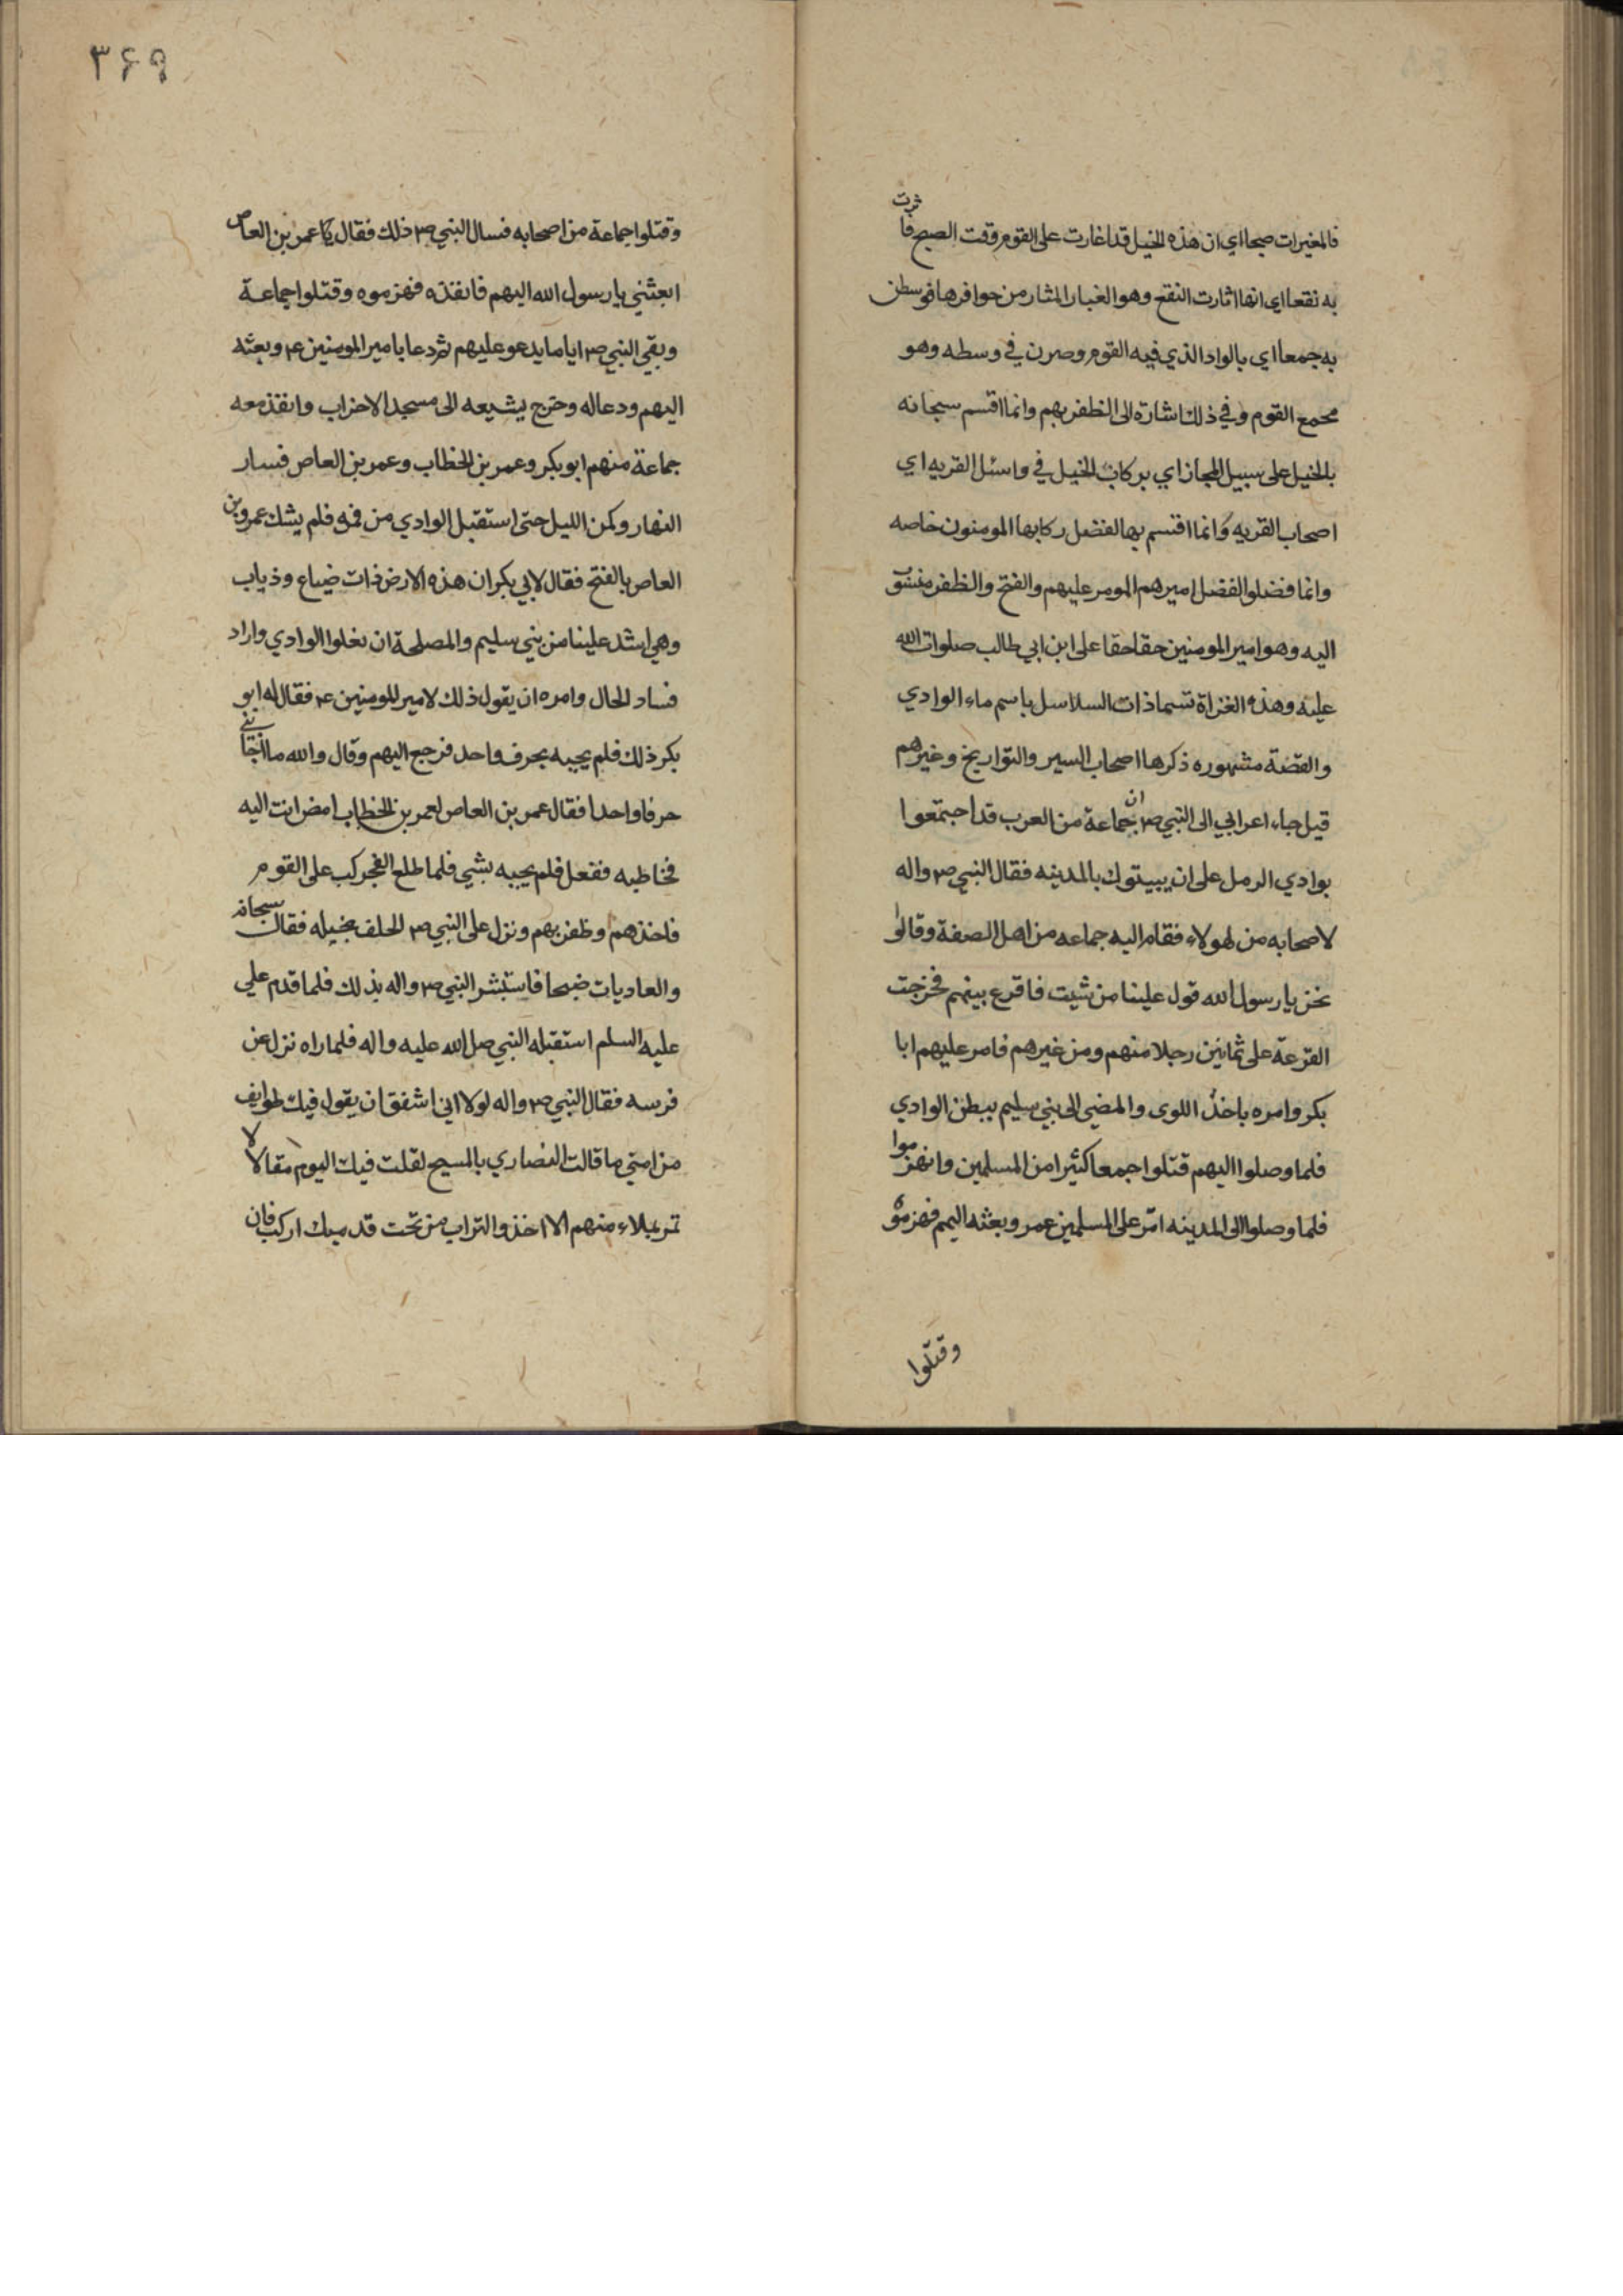 فالمغيرات صبحا اي ان هذه الخيل قد اغارت على القوم وقت الصبح فاثرت
به نقعا اي انها اثارت النقع وهو الغبار المثار من حوافرها فوسطن
به جمعا اي بالواد الذي فيه القوم وصرن في وسطه وهو
مجمع القوم وفي ذلك اشارة الى الظفر بهم وانما اقسم سبحانه
بالخيل على سبيل المجاز اي بركاب الخيل في واسئل القريه اي
اصحاب القريه وانما اقتسم بها لفضل ركابها المومنون خاصه
وانما فضلوا لفضل اميرهم المومر عليهم والفتح والظفر منسوب
اليه وهو امير المومنين حقا حقا على ابن ابي طالب صلوات الله
عليه وهذه الغزاة تسما ذات السلاسل باسم ماء الوادي
والقصة مشهوره ذكرها اصحاب السير والتواريخ وغيرهم
قيل جاء اعرابي الى النبي ص ان جماعة من العرب قد اجتمعوا
بوادي الرمل على ان يبيتوك بالمدينه فقال النبي ص واله
لاصحابه من لهولاء فقام اليه جماعه من اهل الصفة وقالوا
نحن يا رسول الله فول علينا من شيت فاقرع بينهم فخرجت
القرعة على ثمانين رجلا منهم ومن غيرهم فامر عليهم ابا
بكر وامره باخذ اللوى والمضي الى بني سليم ببطن الوادي
فلما وصلوا اليهم قتلوا جمعا كثيرا من المسلمين وانهزموا
فلما وصلوا الى المدينه امّر على المسلمين عمر وبعثه اليهم فهزموه
وقتلوا
٣۶٩
وقتلوا جماعة من اصحابه فسال النبي ص ذلك فقال عمر بن العاص
ابعثني يا رسول الله اليهم فانفذه فهزموه وقتلوا جماعة
وبقي النبي ص اياما يدعو عليهم ثم دعا بامير المومنين ع وبعثه
اليهم ودعا له وخرج يشيعه الى مسجد الاحزاب وانفذ معه
جماعة منهم ابو بكر وعمر بن الخطاب وعمر بن العاص فسار
النهار وكمن الليل حتى استقبل الوادي من فمه فلم يشك عمرو بن
العاص بالفتح فقال لابي بكر ان هذه الارض ذات ضباع وذياب
وهي اشد علينا من بني سليم والمصلحة ان نعلوا الوادي واراد
فساد الحال وامره ان يقول ذلك لامير المومنين ع فقال له ابو
بكر ذلك فلم يجيبه بحرف واحد فرجع اليهم وقال والله ما اجابني
حرفا واحدا فقال عمر بن العاص لعمر بن الخطاب امض انت اليه
فخاطبه ففعل فلم يجبه بشي فلما طلع الفجر كب على القوم
فاخذهم وظفر بهم ونزل على النبي ص الحلف بخيله فقال سبحانه
والعاديات ضبحا فاستبشر النبي ص واله بذلك فلما قدم علي
عليه السلم استقبله النبي صل الله عليه واله فلما راه نزل عن
فرسه فقال النبي ص واله لولا اني اشفق ان يقول فيك طوايف
من امتي ما قالت النصاري بالمسيح لقلت فيك اليوم مقالا لا
تمر بملاء منهم الا اخذوا التراب من تحت قدميك اركب فان